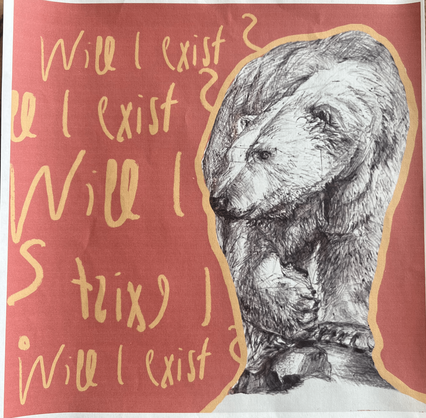 Will I exist ?
ll I exist ?
Will I
I exist ?
Will I exist ?